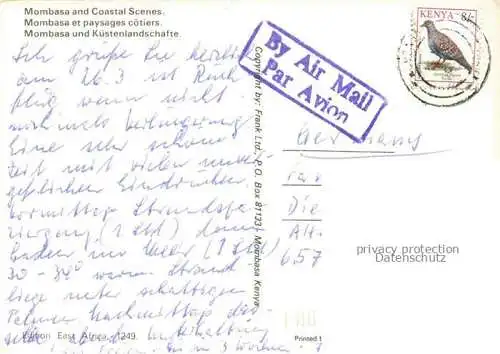 Mombasa and Coastal Scenes.
Mombasa et paysages côtiers.
Mombasa und Küstenlandschafte.
Ich grüße Sie herzl.
am 26.3 ist Rück
flug wenn nicht
nochmals Verlängerung
Eine sehr schöne
Zeit mit vielen unver-
geßlichen Eindrücken.
Vormittag Strandspa-
ziergang (1 Std) dann
baden im Meer (1 Std)
30-34° warm Strand
liege unter schattigen
Palmen Nachmittag
Unterhaltung
in 3 Wochen
Edition East Africa, 1249.
Copyright by: Frank Ltd., P.O. Box 81123 - Mombasa Kenya.
By Air Mail
Par Avion
KENYA 8/-
Germany
Die
657
privacy protection
Datenschutz
Printed